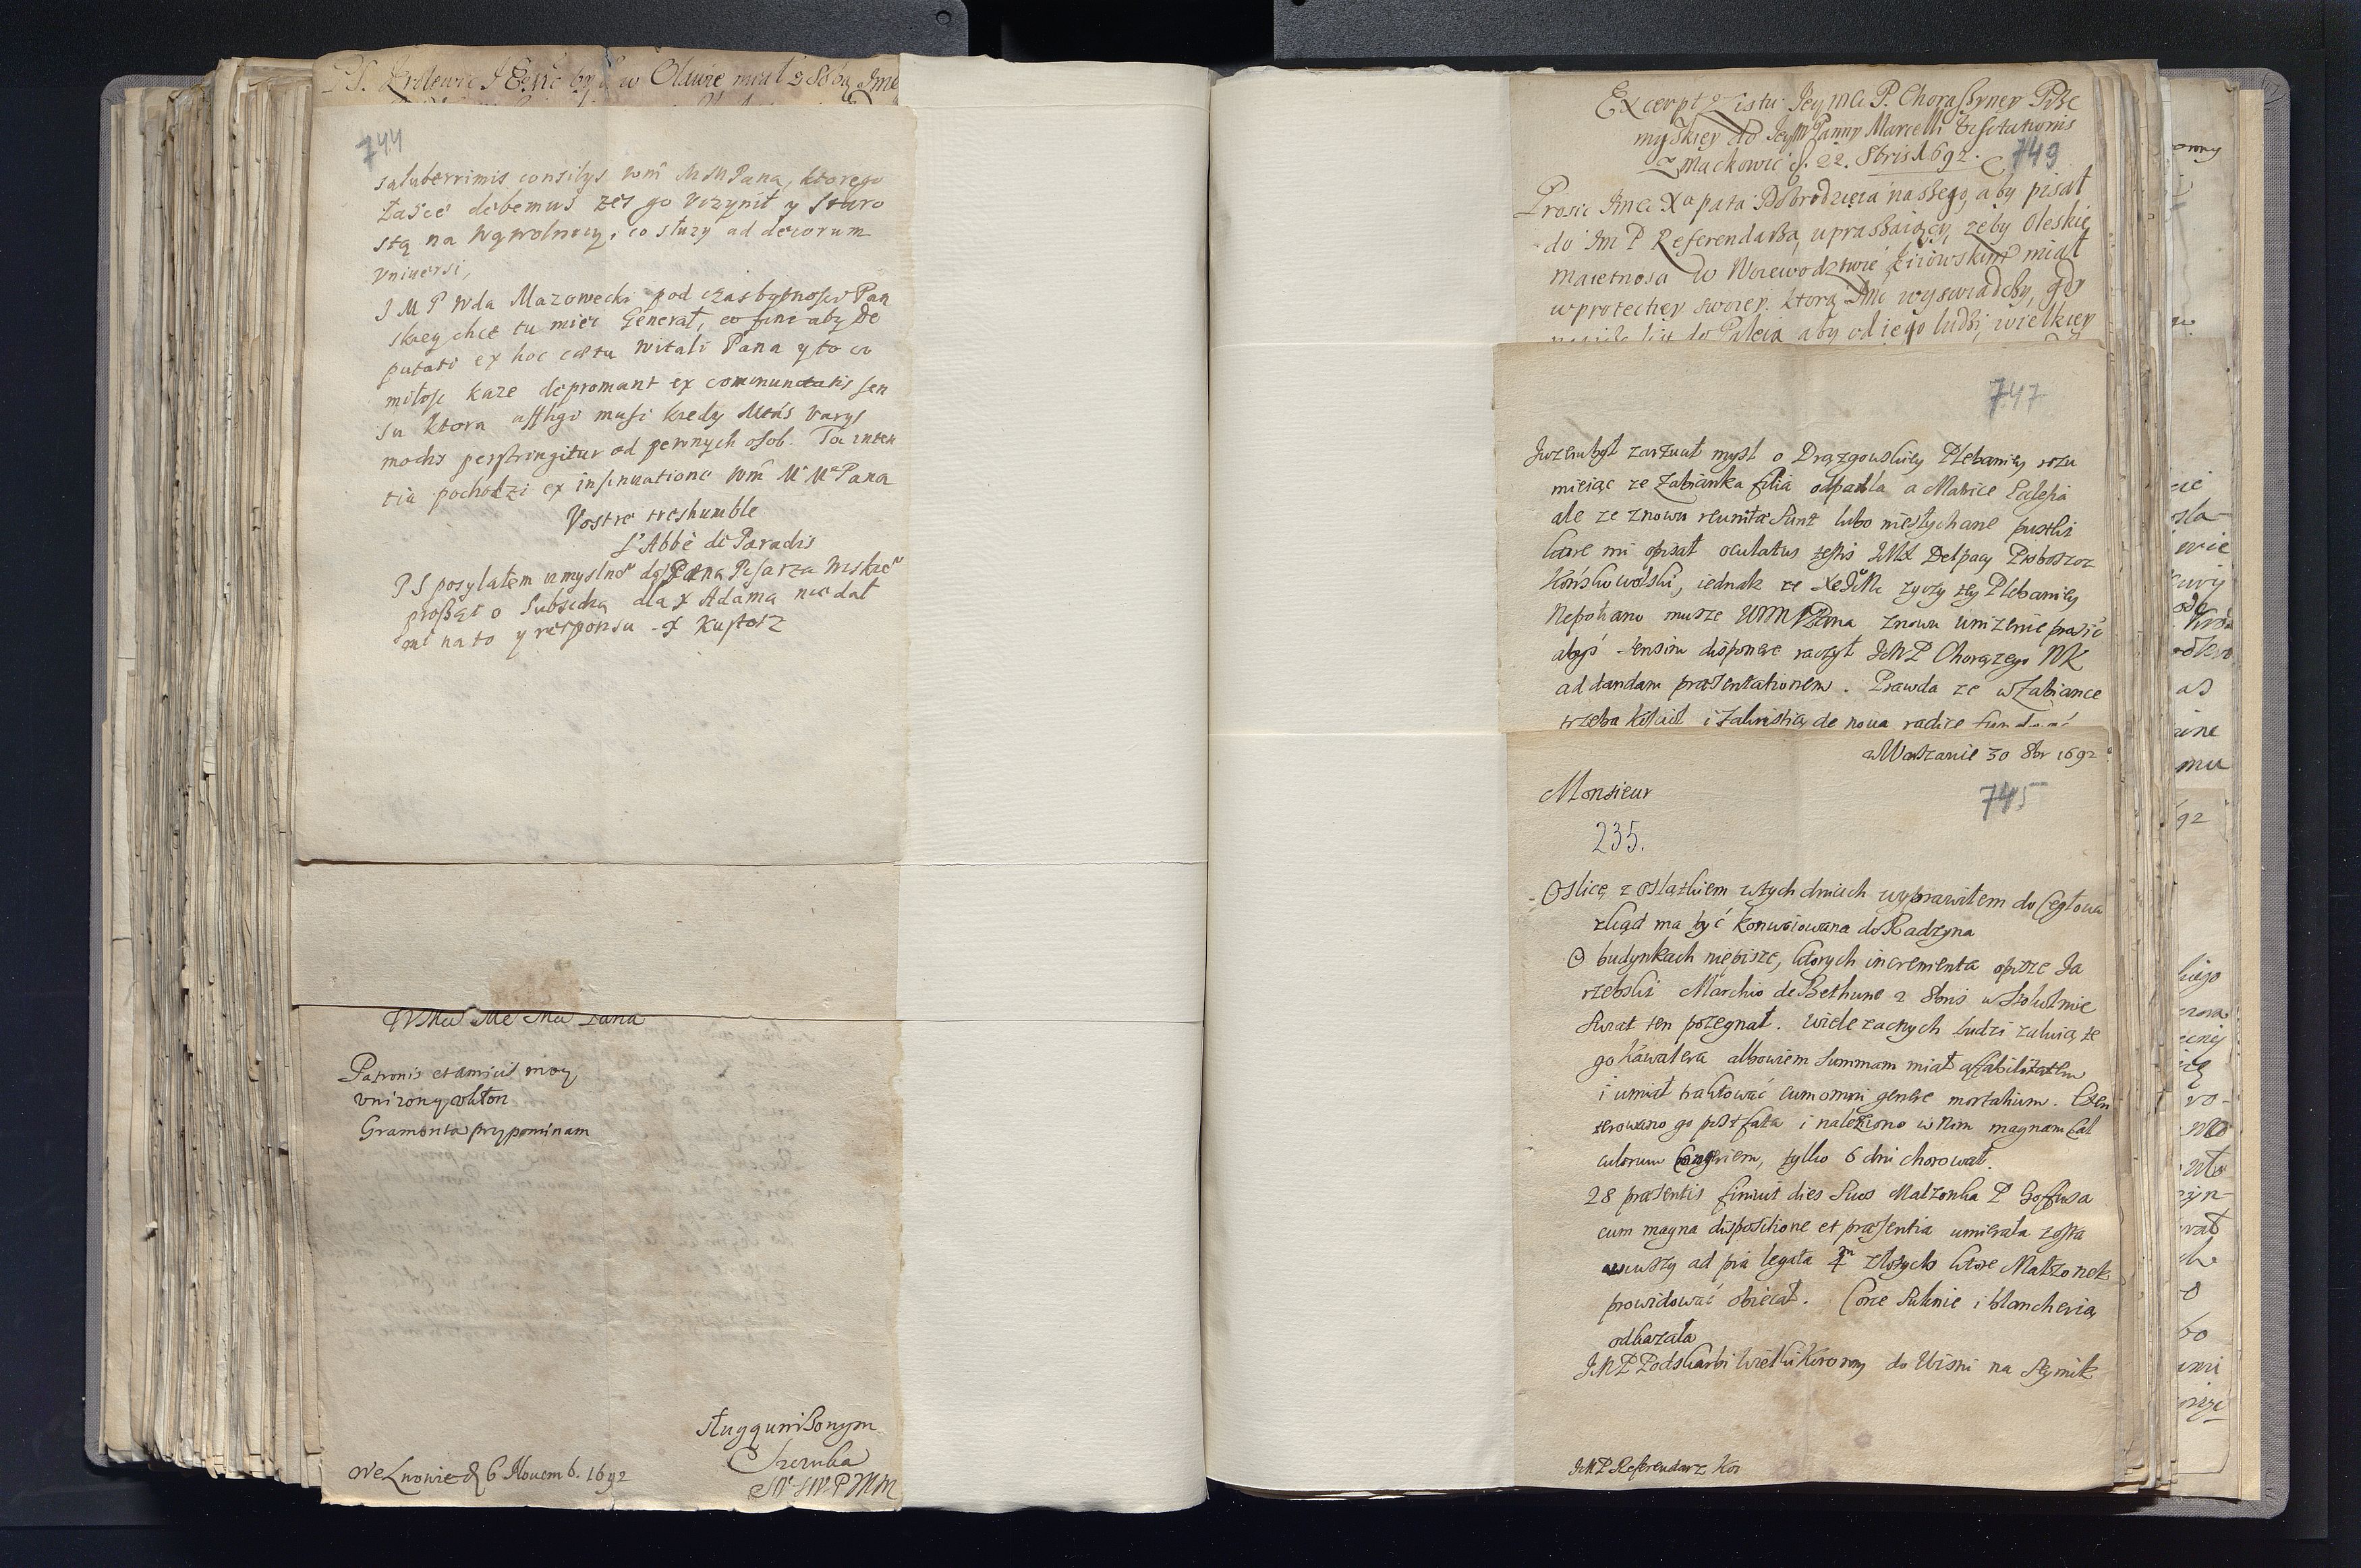 PS. Krolewic JEmc był w Oławie miał z Sobą Jme
744
saluberrimis consilys wm MMPana, ktorego
łasce debemus zes go vczynił y Staro
stą na Wąwolnicy, co służy ad decorum
Vniuersi,
J M P Wda Mazowecki pod czas bytnosci Pan
skiey chce tu miec Generał, eo fine aby De
putati ex hoc cætu witali Pana y to co
miłosc kaze depromant ex communitatis sen
su ktora affligi musi kiedy Mtas varys
modis perstringitur od pewnych osob. Ta inten
tia pochodzi ex insinuatione Wm MMPana
Vostre treshumble
L'Abbè di Paradis
PS posyłałem umyslne do Pana Pisarza
prosząc o Subsidia dla X Adama nie dał
mi na to y responsu - X Kustosz
WMM Me Mu Pana
Patronis et amicis moy
vnizony vkłon
Gramonta przypominam
sługą uniżonym
Szczuka
WeLwowie d 6 Nouemb. 1692
Excerpt z listu Jeymci P. Chorążyney Prze
myskiey do JeyM Panny Marcelli Visitationis
z Mackowic d. 22. 8bris 1692.
749
Prosic Jmci Xa pata Dobrodzieia naszego, aby pisał
do Jm P Referendarza, upraszaiąc, zeby Oleskie
Maietnosci w Woiewodztwie Kiiowskim miał
w protectiey swoiey. ktorą Jmc wyswiadczy, gdy
list do Paleia aby od iego ludzi, wielkiey
747
Juzembył zarzucił mysl o Drązgowskiey Plebaniey rozu
mieiąc ze Zabianka filia odpadła a Matrice Eclesia
ale ze znowu reunitæ sunt lubo niesłychane pustki
tam mi opisał oculatus testis JMX Delpacy Proboszcz
Końskowolski, iednak ze XeJMc zyczy tey Plebaniey
Nepotowi musze WMMPana znowu unizenie prosić
abyś sensim disponere raczył JMP Chorązego WK
ad dandam præsentationem. Prawda ze w Zabiance
trzeba kościoł i Zakristią de noua radice fundować
w Warszawie 30 8br 1692
Monsieur
745
235.
Oslicę z oslątkiem w tych dniach wyprawiłem do Cegłowa
zkąd ma być konwoiowana do Radzyna
O budynkach niepisze, ktorych incrementa opisze Ja
rzebski Marchio de Bethune 2 8bris w Stokolmie
swiat ten pozegnał. Wiele zacnych ludzi załuią te
go kawalera albowiem summam miał affabilitatem
i umiał traktować cum omni genere mortalium. Exen
terowano go post fata i naleziono w nim magnam Cal
culorum Congeriem, tylko 6 dni chorował.
28 præsentis finiuit dies suos Małzonka P Goffusa
cum magna dispositione et præsentia umierała zosta
wuszy ad pia legata 4 m złotych ktore Małzonek
prowidować obiecał. Corce suknie i blancheria
odkazała
JMP Podskarbi Wielki Koronny do Wisni na Seymik
JMP Referendarz Kor